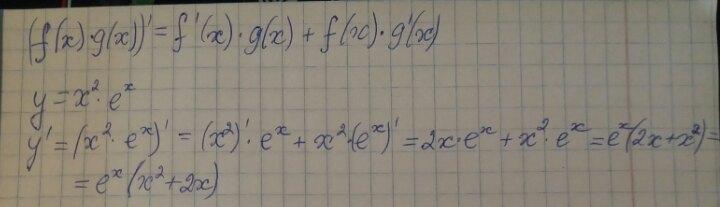 (f(x)·g(x))' = f'(x)·g(x) + f(x)·g'(x)
y = x²·eˣ
y' = (x²·eˣ)' = (x²)'·eˣ + x²·(eˣ)' = 2x·eˣ + x²·eˣ = eˣ(2x + x²) =
= eˣ(x² + 2x)